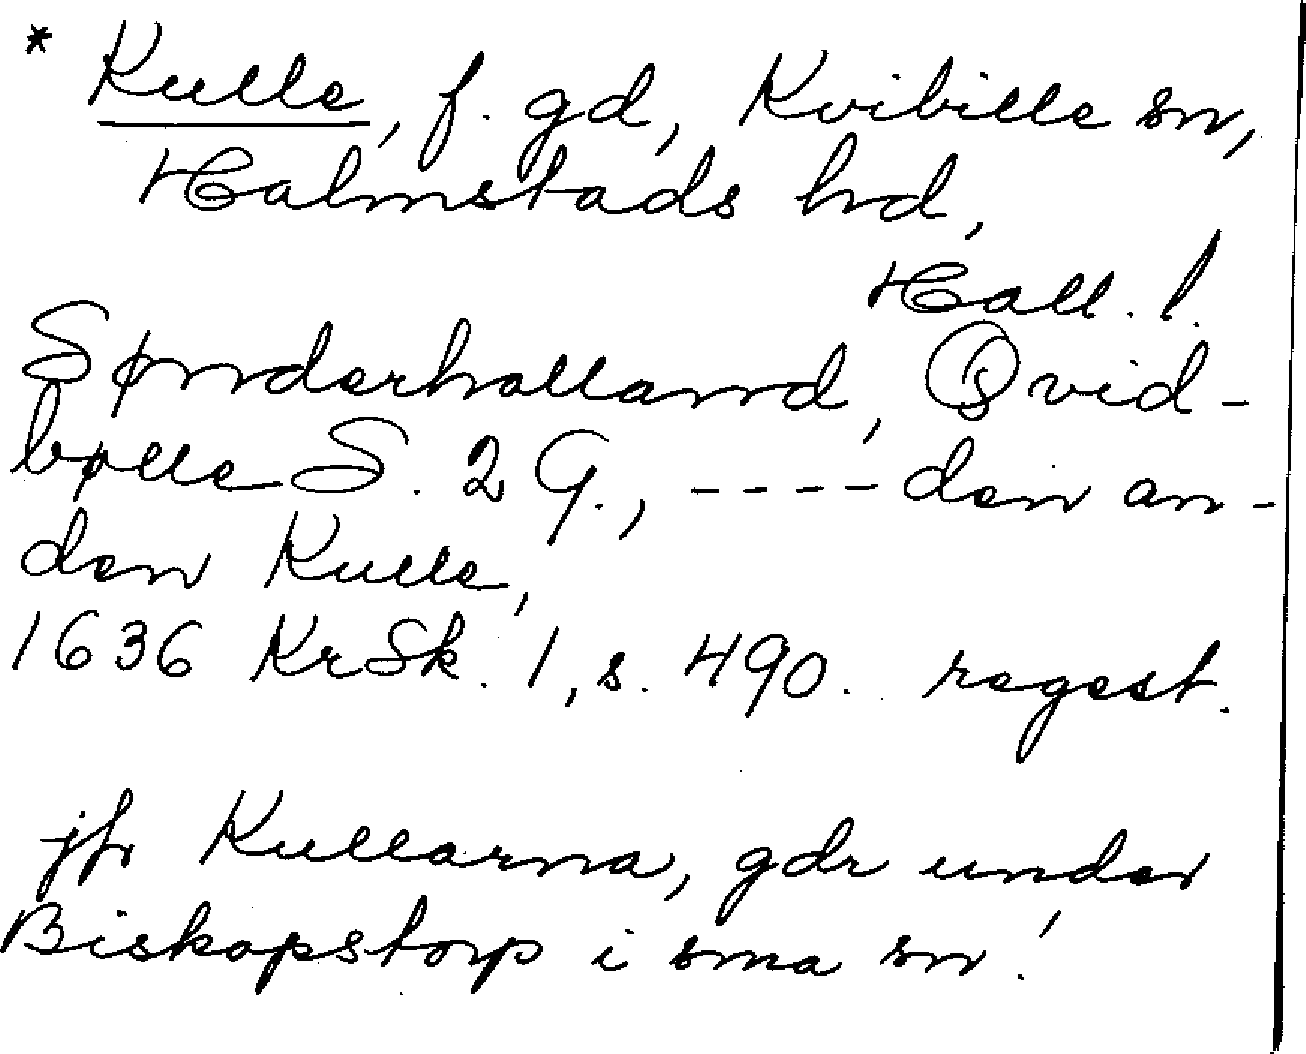 * Kulle, f. gd, Kvibille sn,
Halmstads hd,
Hall. l.
Sønderhalland, Qvid-
bølle S. 2 G., ---- den an-
den Kulle,
1636 KrSk. 1, s. 490. regest.
jfr Kullarna, gdr under
Biskopstorp i sma sn!